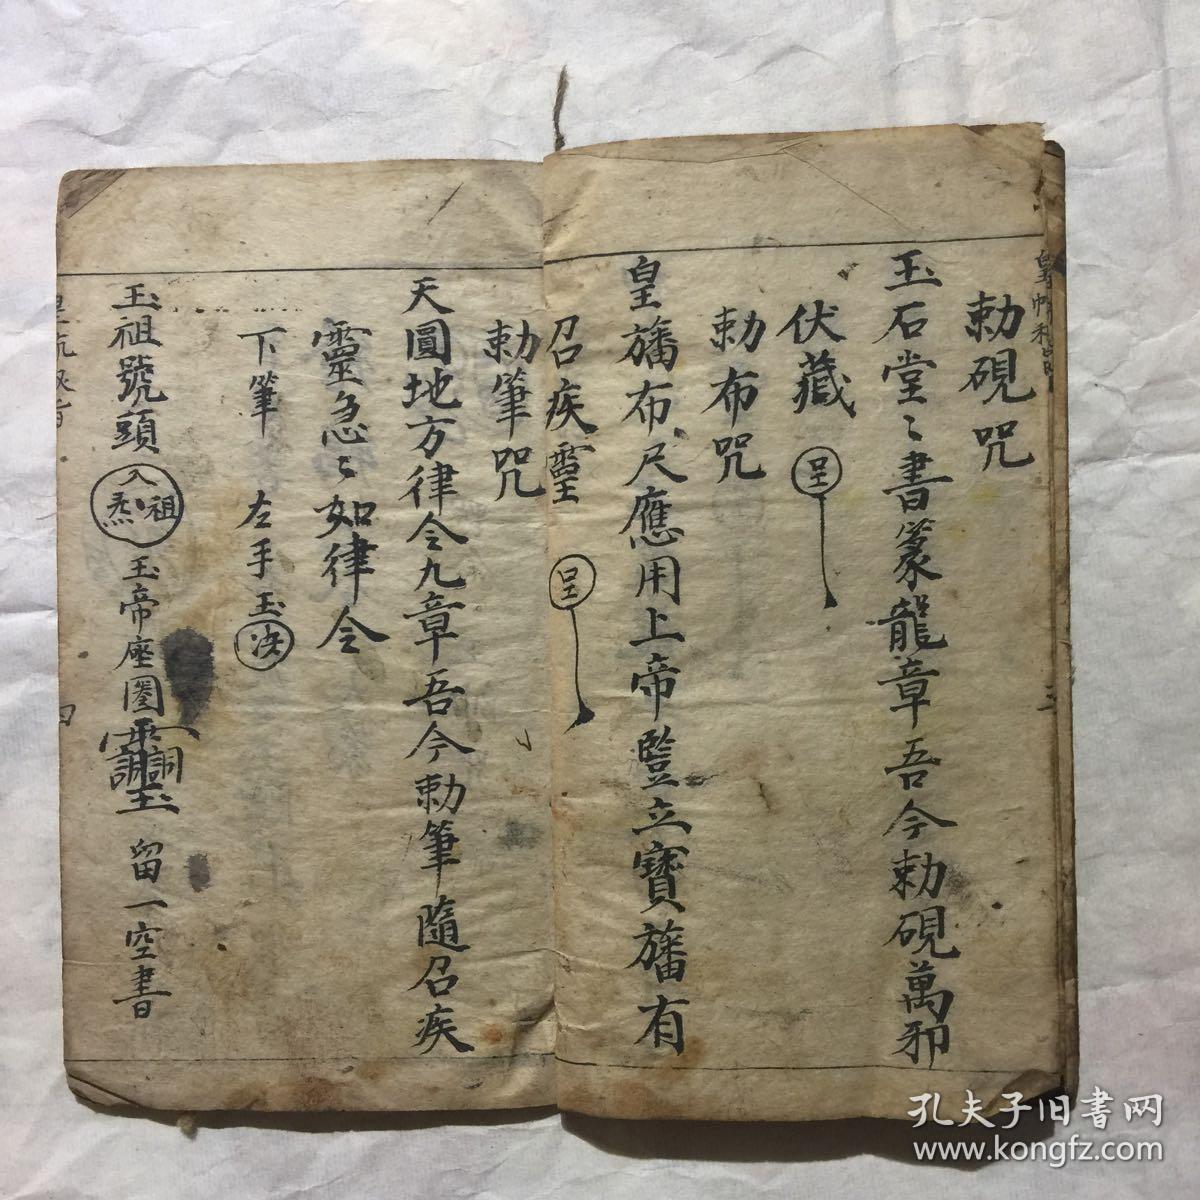 勅硯咒
玉石堂〻書篆龍章吾今勅硯萬邪
伏藏 呈
勅布咒
皇旛布尺應用上帝豎立寶旛有
召疾靈 呈
勅筆咒
天圓地方律令九章吾今勅筆隨召疾
靈急〻如律令
下筆 左手玉决
玉祖號頭 入祖炁 玉帝座圈 留一空書
四
孔夫子旧书网
www.kongfz.com